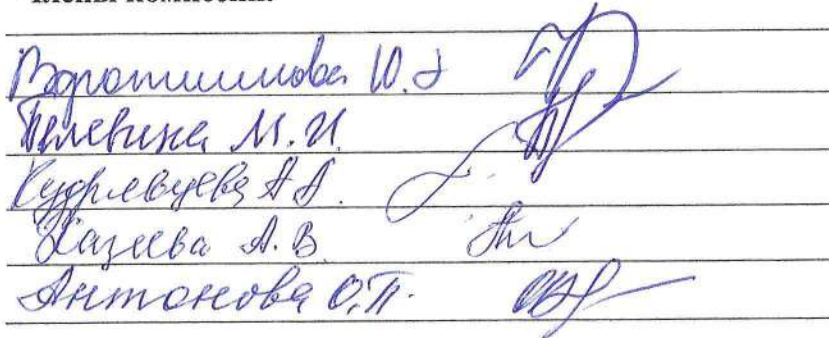 Члены комиссии
Воротникова Ю.
Пелевина М.И.
Кудрявцева А А.
Казеева А. В.
Антонова О.П.